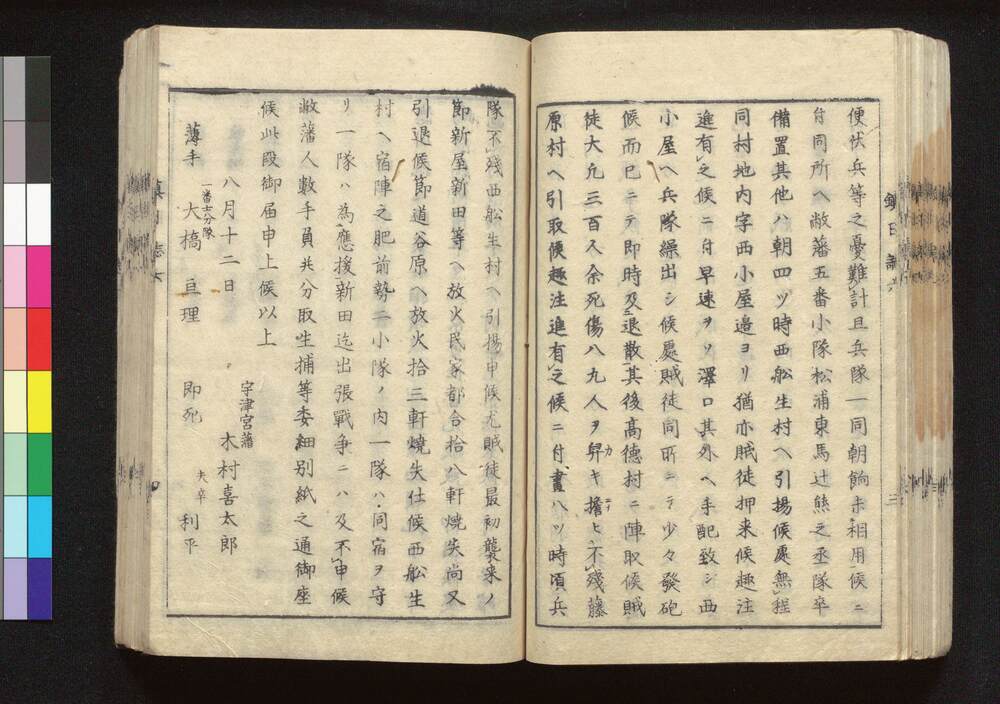 便伏兵等之憂難計且兵隊一同朝餉未相用候ニ
付同所ヘ敝藩五番小隊松浦東馬辻熊之丞隊卒
備置其他ハ朝四ツ時西舩生村ヘ引揚候處無程
同村地内字西小屋邉ヨリ猶亦賊徒押来候趣注
進有之候ニ付早速ヲソ澤口其外ヘ手配致シ西
小屋ヘ兵隊繰出シ候處賊徒同所ニテ少々發砲
候而已ニテ即時及退散其後髙德村ニ陣取候賊
徒大凢三百人余死傷八九人ヲ舁キ擔ヒ不殘藤
原村ヘ引取候趣注進有之候ニ付晝八ツ時頃兵
隊不殘西舩生村ヘ引揚申候尤賊徒最初襲来ノ
節新屋新田等ヘ放火民家都合拾八軒焼失尚又
引退候節道谷原ヘ放火拾三軒燒失仕候西舩生
村ヘ宿陣之肥前勢二小隊ノ内一隊ハ同宿ヲ守
リ一隊ハ為應援新田迄出張戰争ニハ及不申候
敝藩人數手負共分取生捕等委細别紙之通御座
候此段御届申上候以上
八月十二日
宇津宮藩
木村喜太郎
薄手
一番士分隊
大槁亘理
即死
夫卒
利平
鎭日誌六
三